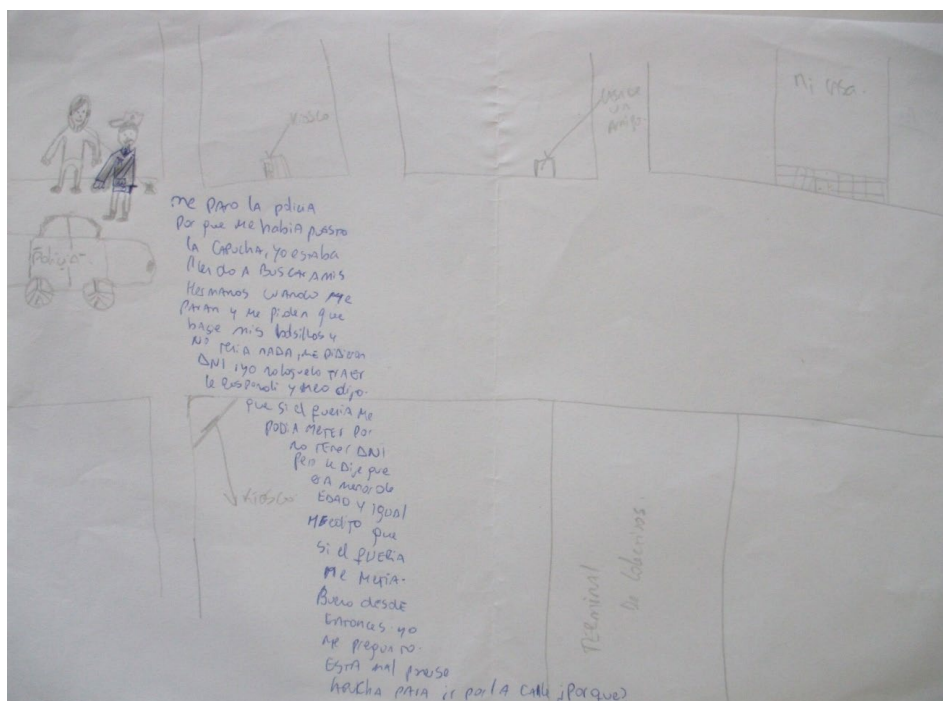 Kiosco
casa de
un
amigo.
mi casa.
Policia
me paro la policia
Por que me habia puesto
la capucha, yo estaba
llendo A BUSCAR A mis
Hermanos cuando me
paran y me piden que
baje mis bolsillos y
no tenia nada, me pidieron
DNI y yo no lo suelo traer
le respondi y meo dijo.
que si el queria me
podia meter por
no tener DNI
pero le dije que
era menor de
EDAD y igual
me dijo que
si el queria
me metia.
Bueno desde
Entonces yo
me pregunto.
Está mal ponerse
capucha para ir por la calle ¡Porque?
Kiosco
Terminal
de colectivos.